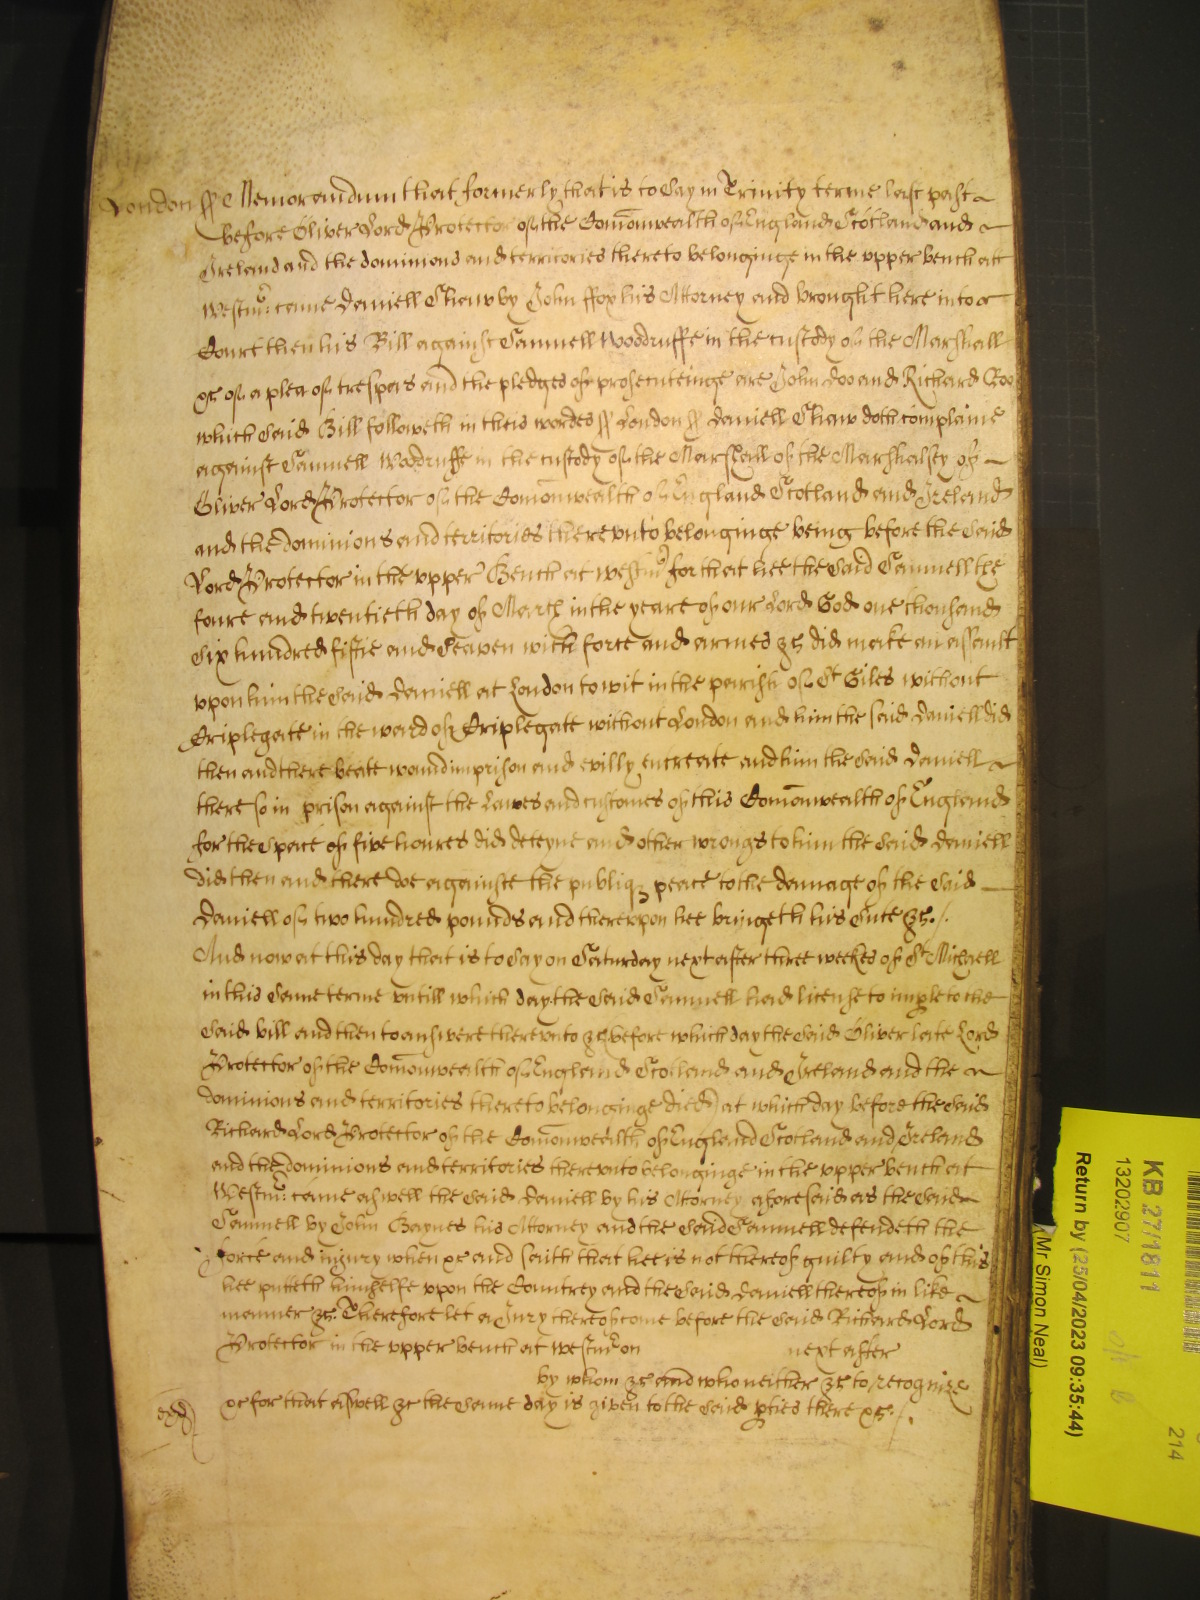 London ss Memorandum that formerly that is to say in Trinity terme last past
before Oliver Lord Protector of the Com̄onwealth of England Scotland and
Ireland and the dominions and territories thereto belonginge in the vpper bench att
Westmr: came Daniell Shaw by John ffox his Attorney and brought here into
Court then his Bill against Samuell Woodruffe in the custody of the Marshall
&c of a plea of trespas and the pledges of prosecuteinge are John Doo and Richard Roo
which said Bill followeth in theis wordes ss London ss Daniell Shaw doth complaine
against Samuell Woodruffe in the custody of the Marshall of the Marshalsey of
Oliver Lord Protector of the Com̄onwealth of England Scotland and Ireland
and the dominions and territories therevnto belonginge being before the said
Lord Protector in the vpper Bench at Westmr for that hee the said Samuell the
foure and twentieth day of March in the yeare of our Lord God one thousand
six hundred fiftie and seaven with force and armes &c did make an assault
vpon him the said Daniell at London to wit in the parish of St Giles without
Criplegate in the ward of Criplegate without London and him the said Daniell did
then and there beate wound imprison and evilly entreate and him the said Daniell
there so in prison against the Lawes and customes of this Com̄onwealth of England
for the space of five houres did deteyne and other wrongs to him the said Daniell
did then and there doe againste the publiq peace to the damage of the said
Daniell of two hundred pounds and therevpon hee bringeth his sute &c./.
And now at this day that is to say on Saturday next after three weekes of St Michaell
in this same terme vntill which day the said Samuell had license to imple to the
said bill and then to answere therevnto &c before which day the said Oliver late Lord
Protector of the Com̄onwealth of England Scotland and Ireland and the
dominions and territories thereto belonginge died) at which day before the said
Richard Lord Protector of the Com̄onwealth of England Scotland and Ireland
and the dominions and territories therevnto belonginge in the vpper bench at
Westmr: came aswell the said Daniell by his Attorney aforesaid as the said
Samuell by John Baynes his Attorney and the said Samuell defendeth the
force and injury when &c and saith that hee is not thereof guilty and of this
hee putteth himselfe vpon the Countrey and the said Daniell thereof in like
manner &c. Therefore let a Jury thereof come before the said Richard Lord
Protector in the vpper bench at Westmr on next after
by whom &c and who neither &c to recognize
&c for that aswell &c the same day is given to the said pties there &c./.
KB 27/1811
13202907
Return by (25/04/2023 09:35:44)
(Mr Simon Neal)
214